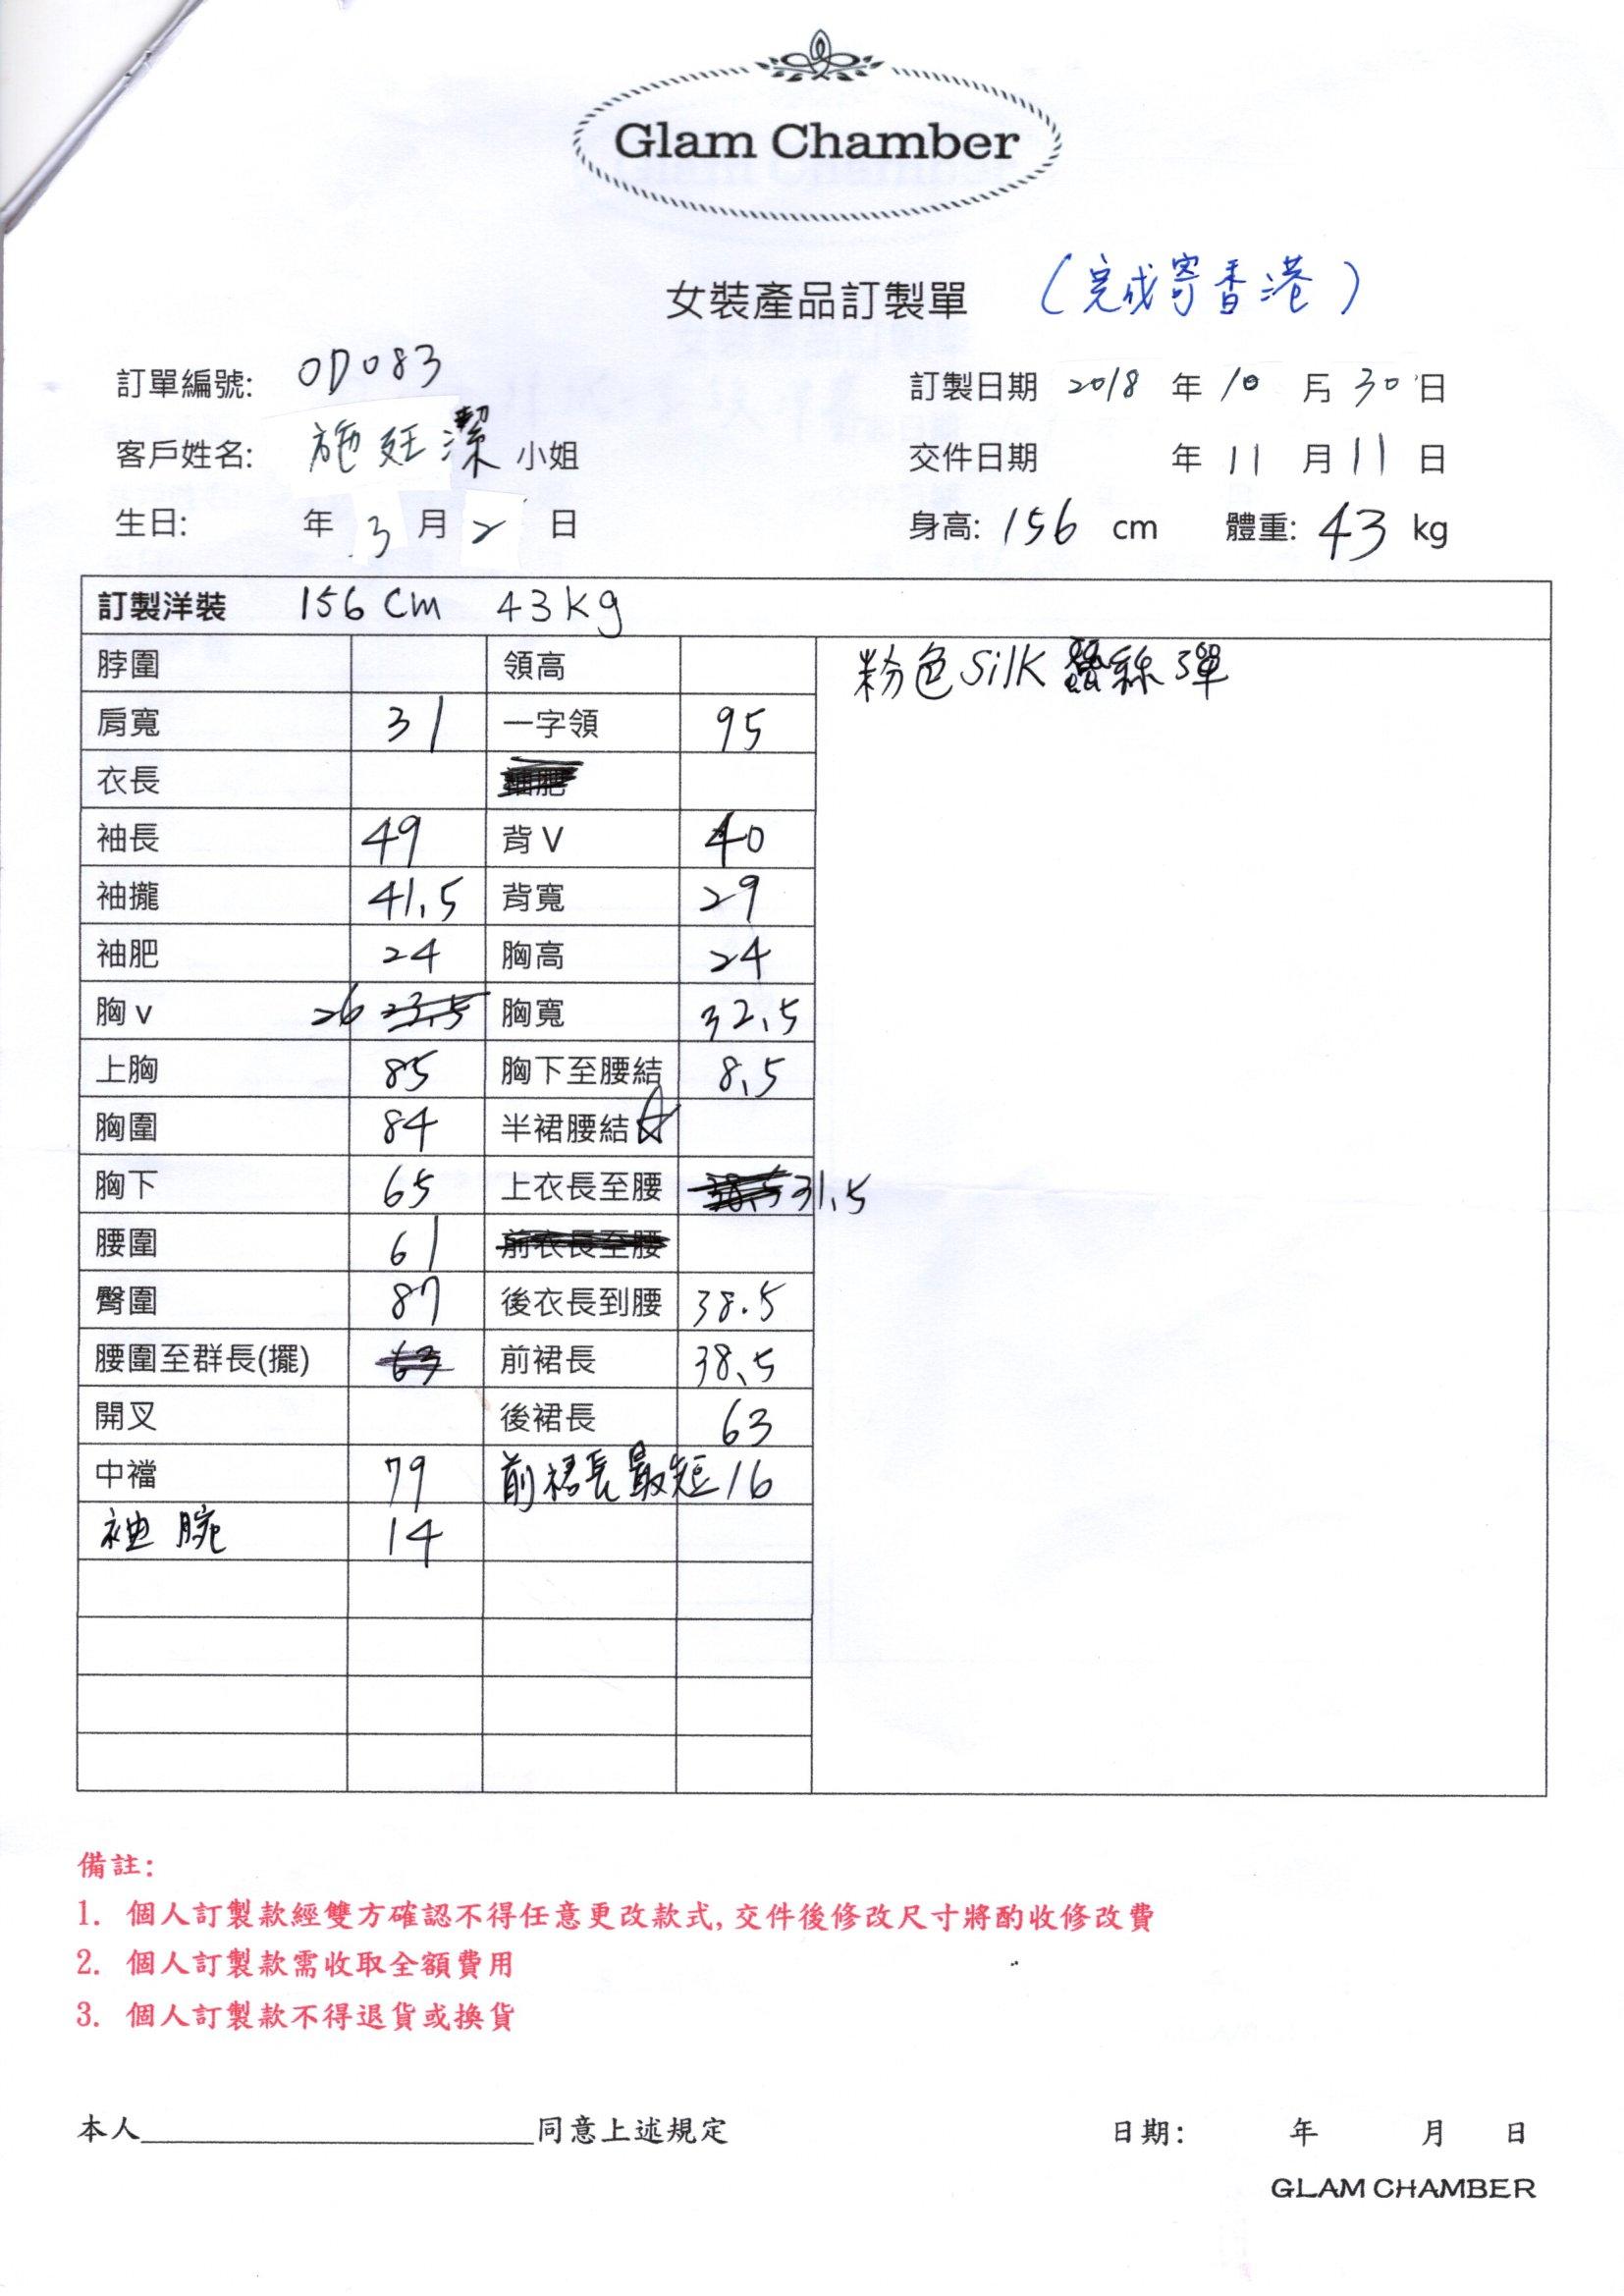 Glam Chamber
女裝產品訂製單 (完成寄香港)
訂單編號: OD083 訂製日期 2018 年 10 月 30 日
客戶姓名: 施廷潔 小姐 交件日期 年 11 月 11 日
生日: 年 3 月 2 日 身高: 156 cm 體重: 43 kg
訂製洋裝 156 cm 43 kg
脖圍 領高 粉色 Silk 蠶絲彈
肩寬 31 一字領 95
衣長 袖肥
袖長 49 背V 40
袖攏 41.5 背寬 29
袖肥 24 胸高 24
胸v 26 23.5 胸寬 32.5
上胸 85 胸下至腰結 8.5
胸圍 84 半裙腰結☆
胸下 65 上衣長至腰 38.5 31.5
腰圍 61 前衣長至腰
臀圍 87 後衣長到腰 38.5
腰圍至群長(擺) 63 前裙長 38.5
開叉 後裙長 63
中襠 79 前裙長最短 16
袖腕 14
備註:
1. 個人訂製款經雙方確認不得任意更改款式,交件後修改尺寸將酌收修改費
2. 個人訂製款需收取全額費用
3. 個人訂製款不得退貨或換貨
本人____________________同意上述規定 日期: 年 月 日
GLAM CHAMBER